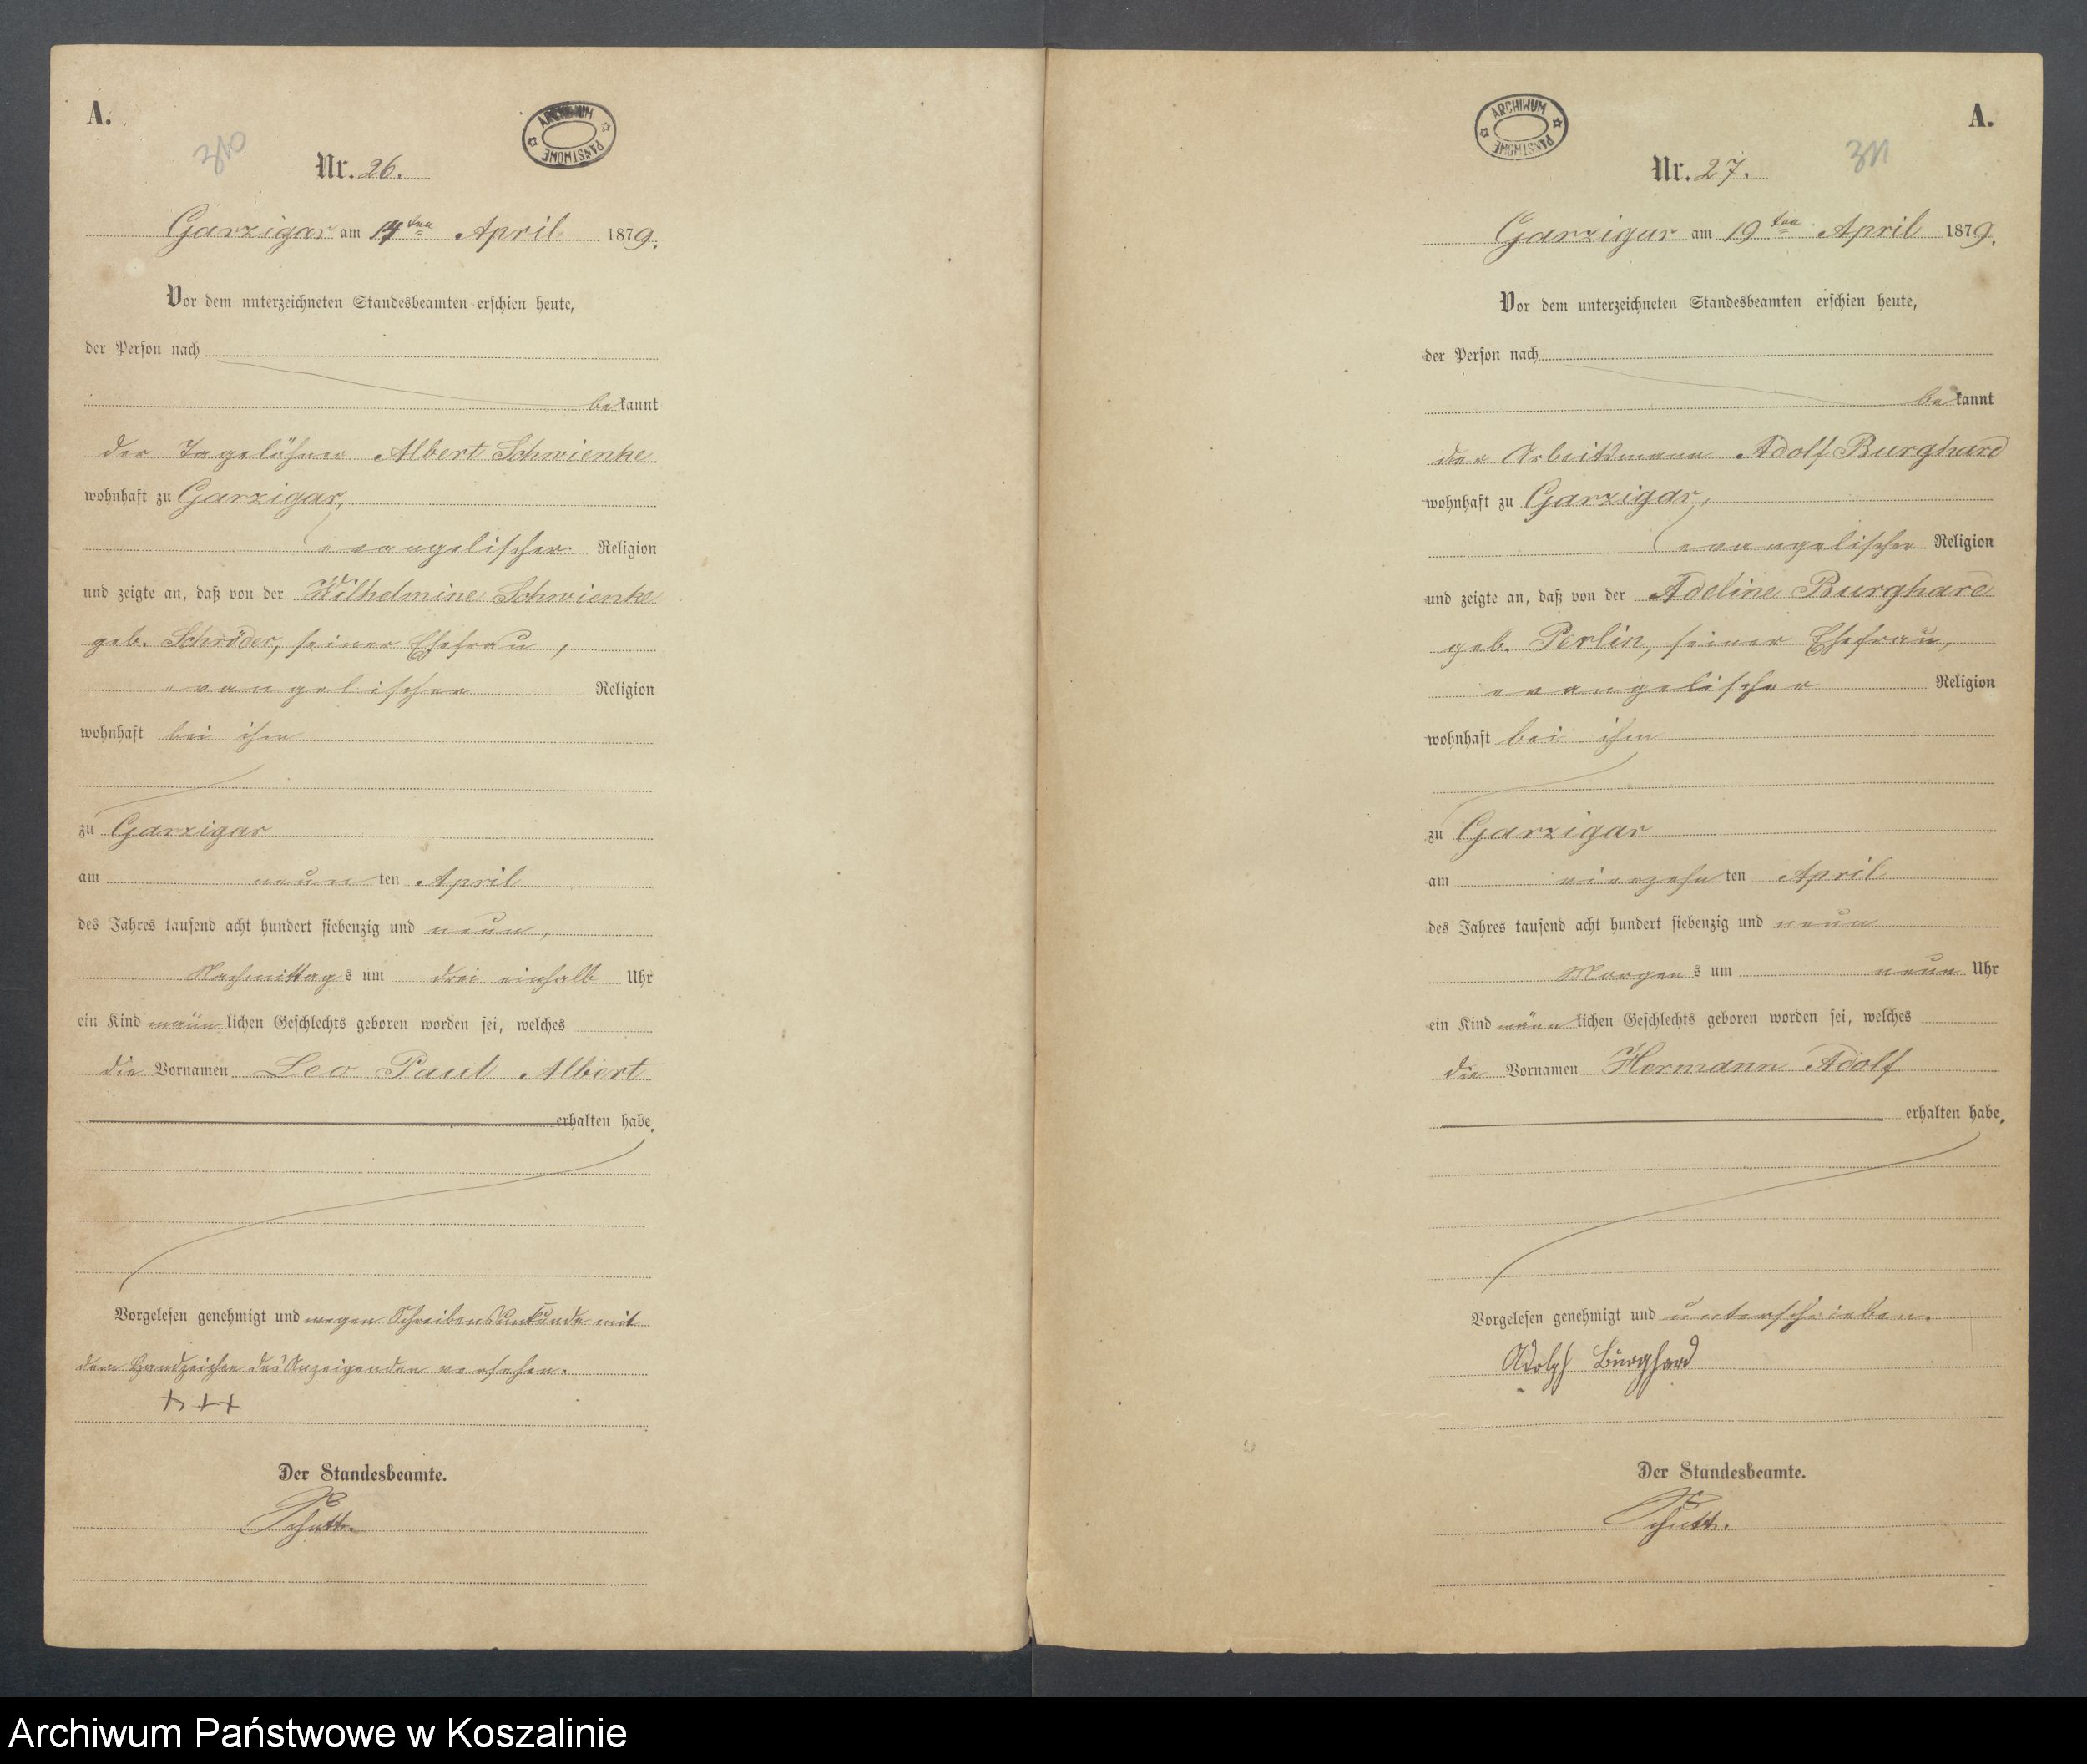 A.
310
ARCHIWUM PAŃSTWOWE
Nr. 26.
Garzigar am ten April 1879.
Vor dem unterzeichneten Standesbeamten erschien heute,
der Person nach
bekannt
der Tagelöhner Albert Schwienke
wohnhaft zu Garzigar,
evangelischer Religion
und zeigte an, daß von der Wilhelmine Schwienke
geb. Schröder, seiner Ehefrau,
evangelischer Religion
wohnhaft bei ihm
zu Garzigar
am neunten April
des Jahres tausend acht hundert siebenzig und neun,
Nachmittags um drei einhalb Uhr
ein Kind männlichen Geschlechts geboren worden sei, welches
die Vornamen Leo Paul Albert
erhalten habe.
Vorgelesen genehmigt und wegen Schreibensunkunde mit
dem Handzeichen des Anzeigenden versehen.
+++
Der Standesbeamte.
ARCHIWUM PAŃSTWOWE
A.
311
Nr. 27.
Garzigar am 19ten April 1879.
Vor dem unterzeichneten Standesbeamten erschien heute,
der Person nach
bekannt
der Arbeitsmann Adolf Burghard
wohnhaft zu Garzigar,
evangelischer Religion
und zeigte an, daß von der Adeline Burghard
geb. Perlin, seiner Ehefrau,
evangelischer Religion
wohnhaft bei ihm
zu Garzigar
am vierzehnten April
des Jahres tausend acht hundert siebenzig und neun
Morgens um neun Uhr
ein Kind männlichen Geschlechts geboren worden sei, welches
die Vornamen Hermann Adolf
erhalten habe.
Vorgelesen genehmigt und unterschrieben.
Adolph Burghard
Der Standesbeamte.
Archiwum Państwowe w Koszalinie